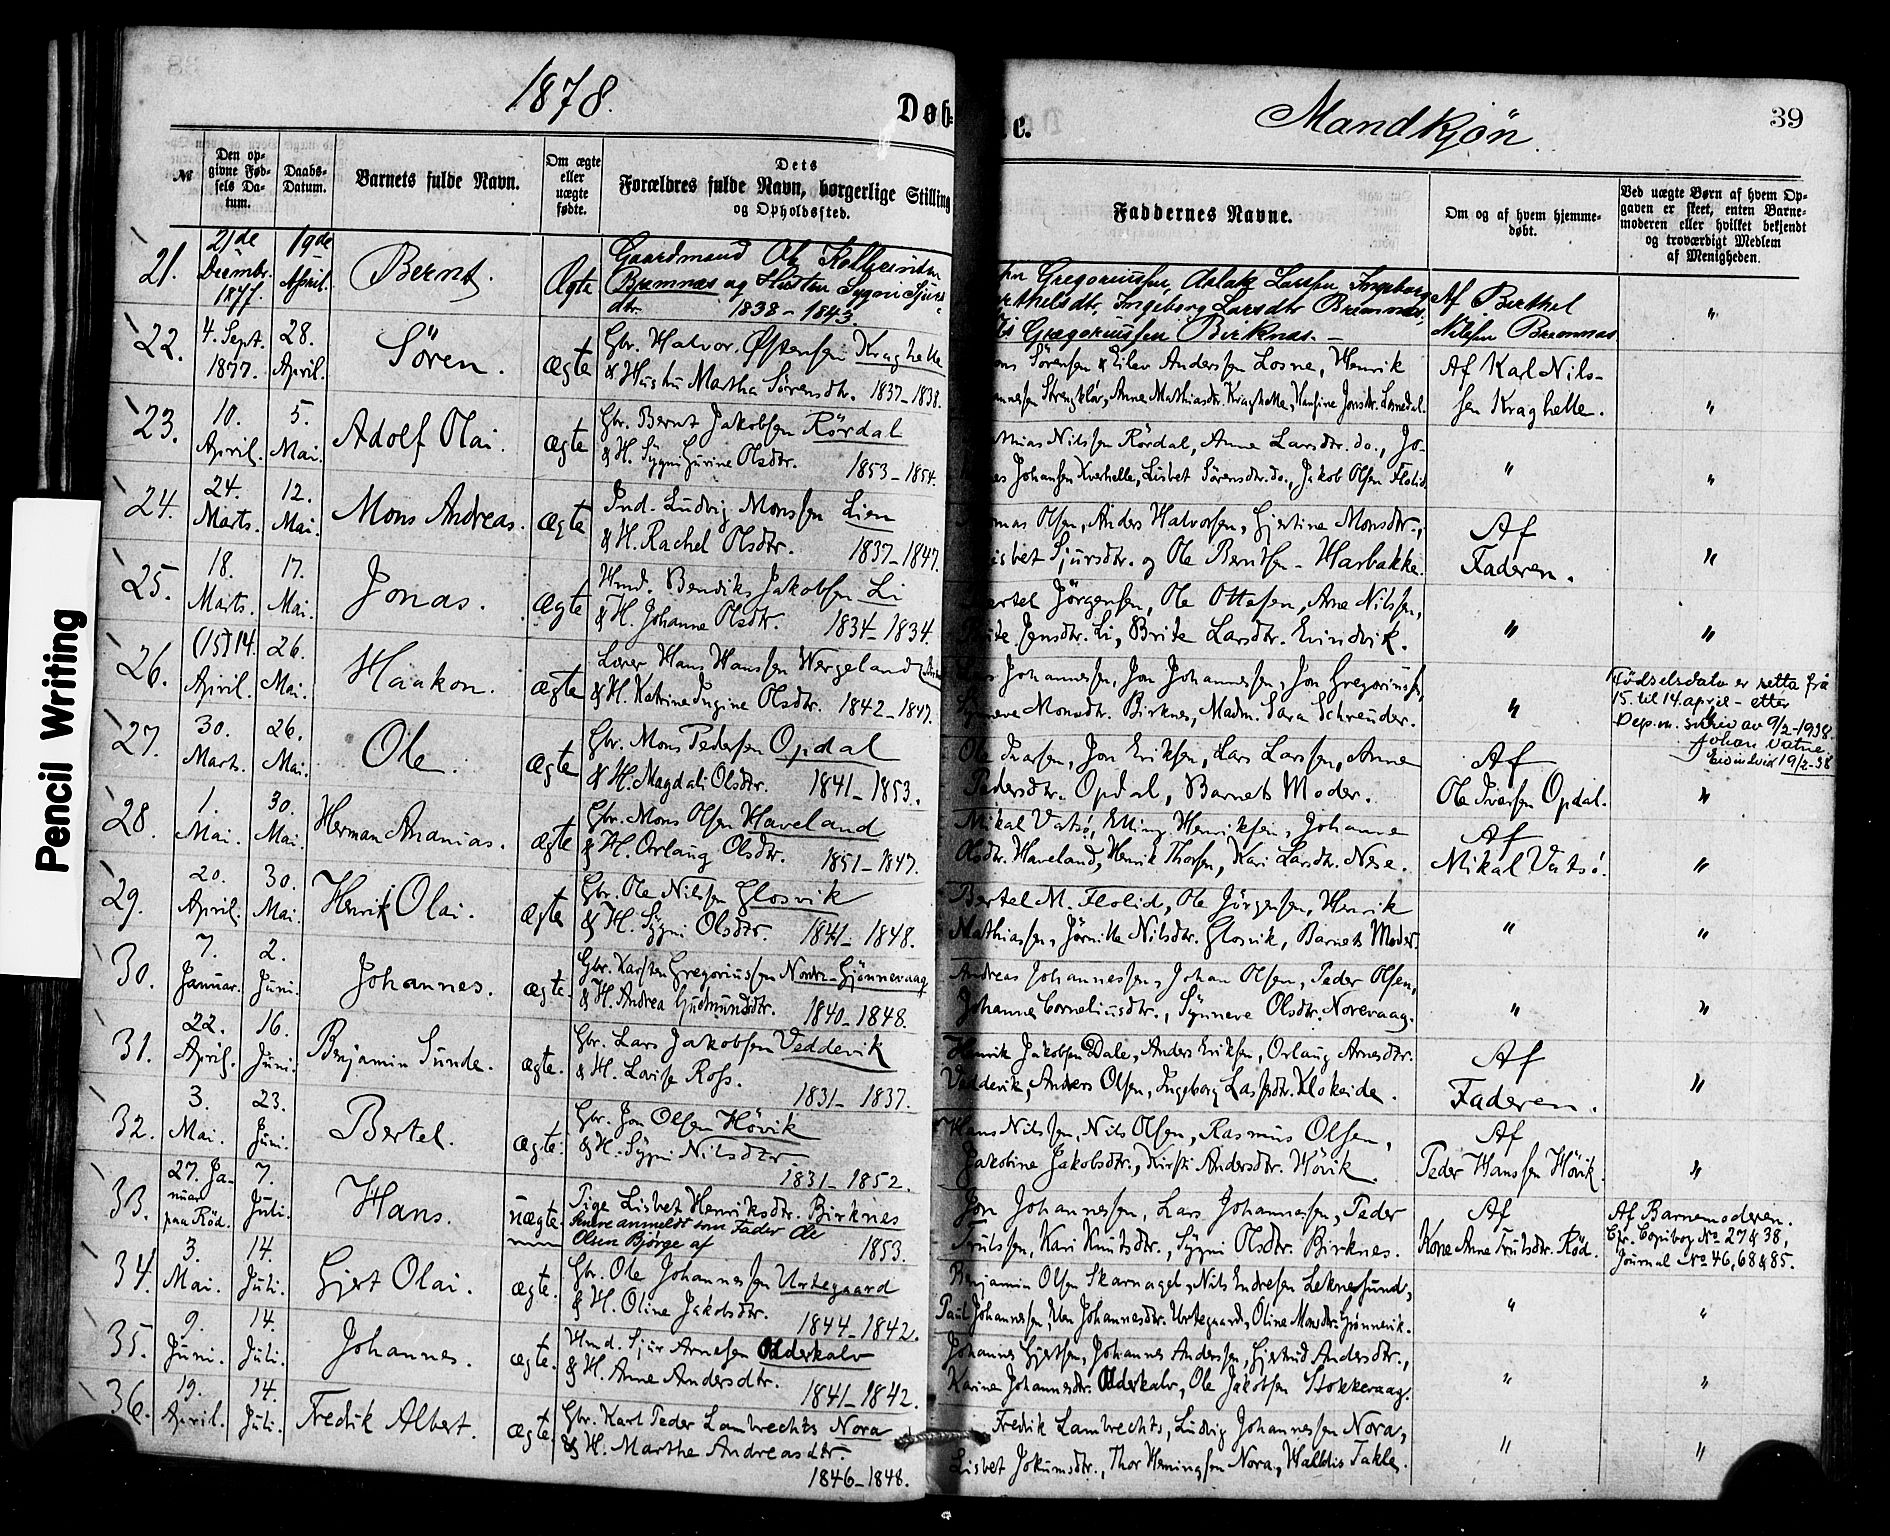 1878.
Døb-
te.
Mandkjøn.
39
№
Den opgivne Fødsels Datum.
Daabs-Datum.
Barnets fulde Navn.
Om ægte eller uægte fødte.
Dets Forældres fulde Navn, borgerlige Stilling og Opholdssted.
Faddernes Navne.
Om og af hvem hjemmedøbt.
Ved uægte Børn af hvem Opgaven er skeet, enten Barnemoderen eller hvilket bekjendt og troværdigt Medlem af Menigheden.
21. 21de Decembr. 1877. 19de April. Bernt. Ægte
Gaardmand Ole
Bremnæs og Hustru Sygni Sjurs-
dtr. 1838 - 1843.
Gregoriussen, Aslak Larssen, Ingeborg
Berthelsdtr, Ingeborg Larsdtr Bremnæs,
Gregoriussen Birknæs. -
Af Berthel
Nilssen Bremnæs
"
22. 4. Sept. 1877. 28. April. Søren. ægte
Gbr. Halvor Østensen Kraghelle
& Hustru Martha Sørensdtr. 1837-1838.
Sørensen & Eilev Anderssen Losne, Henrik
Hannessen Strengklør, Anne Mathiasdtr. Kraghelle, Hansine Jonsdtr. Lonedal.
Af Karl Nils-
sen Kraghelle.
"
23. 10. April. 5. Mai. Adolf Olai. ægte
Gbr. Bernt Jakobsen Rördal
& H. Sygni Gurine Olsdtr. 1853-1854.
Mathias Nilssen Rördal, Anne Larsdtr. do., Jo-
Johansen Kverhelle, Lisbet Sörensdtr. do., Jakob Olsen Flolid.
"
"
24. 24. Marts. 12. Mai. Mons Andreas. ægte
Ind. Ludvig Monssen Lien
& H. Rachel Olsdtr. 1837-1847.
Tomas Olsen, Anders Halvorsen, Gjertine Monsdtr.,
Lisbet Sjursdtr. og Ole Berntsen - Harbakke.
Af
Faderen.
"
25. 18. Marts. 17. Mai. Jonas. ægte
Hmd. Bendik Jakobsen Li
& H. Johanne Olsdtr. 1834-1834.
Bertel Jörgensen, Ole Ottesen, Arne Nilssen,
Brite Jensdtr. Li, Brite Larsdtr. Evindvik.
"
"
26. (15) 14. April. 26. Mai. Haakon. ægte
Lærer Hans Hanssen Wergeland
& H. Katrine Jugine Olsdtr. 1842-1847.
Johannesen, Jon Johannessen, Jon Gregoriussen,
Synneve Monsdtr. Birknes, Madm. Sara Schreuder.
"
Födselsdato er retta frå
15. til 14. april - etter
Dep.m. skriv av 9/2-1938.
Johan Vatne.
Eivindvik 19/2-38
27. 30. Marts. 26. Mai. Ole. ægte
Gbr. Mons Pedersen Opdal
& H. Magdali Olsdtr. 1841-1853.
Ole Ivarsen, Jon Eriksen, Lars Larsen, Anne
Pedersdtr. Opdal, Barnets Moder.
Af
Ole Ivarsen Opdal.
"
28. 1. Mai. 30. Mai. Herman Ananias. ægte
Gbr. Mons Olsen Haveland
& H. Orlaug Olsdtr. 1851-1847.
Mikal Vatsö, Elling Henriksen, Johanne
Olsdtr. Haveland, Henrik Thorsen, Kari Larsdtr. Nese.
Af
Mikal Vatsö.
"
29. 20. April. 30. Mai. Henrik Olai. ægte
Gbr. Ole Nilsen Glosvik
& H. Sygni Olsdtr. 1841-1848.
Bertel M. Flolid, Ole Jörgensen, Henrik
Mathiassen, Jörnille Nilsdtr. Glosvik, Barnets Moder.
"
"
30. 7. Januar. 2. Juni. Johannes. ægte.
Gbr. Karsten Gregoriussen Nordre-Gjönnevaag
& H. Andrea Gudmundsdtr. 1840-1848.
Andreas Johannessen, Johan Olsen, Peder Olsen,
Johanne Corneliusdtr., Synneve Olsdtr. Norevaag.
"
"
31. 22. April. 16. Juni. Benjamin Sunde. ægte.
Gbr. Lars Jakobsen Veddevik
& H. Lovise Ross. 1831-1837.
Henrik Jakobsen Dale, Anders Eriksen, Orlaug Arnesdtr.
Veddevik, Anders Olsen, Ingeborg Lassesdtr. Klokeide.
Af
Faderen.
"
32. 3. Mai. 23. Juni. Bertel. ægte.
Gbr. Jon Olsen Hövik
& H. Sygni Nilsdtr 1831-1852.
Hans Nilssen, Nils Olsen, Rasmus Olsen,
Jakobine Jakobsdtr., Kirsti Andersdtr. Hövik.
Af
Peder Hanssen Hövik.
"
33. 27. Januar paa Röd. 7. Juli. Hans. uægte.
Pige Lisbet Henriksdtr. Birknes
anmeldt som Fader Ole
Olsen Bjørge af 1853.
Jon Johannessen, Lars Johannessen, Peder
Trulssen, Kari Knutsdtr., Sygni Olsdtr. Birknes.
Af
Kone Anne Trulsdtr. Röd.
Af Barnemoderen.
Cfr. Copibog No 27 & 38,
Journal No 46, 68 & 85.
34. 3. Mai. 14. Juli. Gjert Olai. ægte.
Gbr. Ole Johannessen Urtegaard
& H. Oline Jakobsdtr. 1844-1842.
Benjamin Olsen Skarnagel, Nils Endresen Leknessund,
Paul Johannessen, Elen Johannesdtr. Urtegaard, Oline Monsdtr. Grönnevik.
"
"
35. 9. Juni. 14. Juli. Johannes. ægte.
Hmd. Sjur Arnesen Olderkalv
& H. Anne Andersdtr. 1841-1842.
Johannes Gjertsen, Johannes Anderssen, Gjertrud Andersdtr.,
Karine Johannesdtr. Olderkalv, Ole Jakobsen Stokkevaag.
"
"
36. 19. April. 14. Juli. Fredik Albert. ægte.
Gbr. Karl Peder Lambrechts Nora
& H. Marthe Andreasdtr. 1846-1848.
Fredik Lambrechts, Ludvig Johannessen Nora,
Lisbet Jokumsdtr., Thor Hemingsen Nora, Waldis Takle.
"
"
Pencil Writing